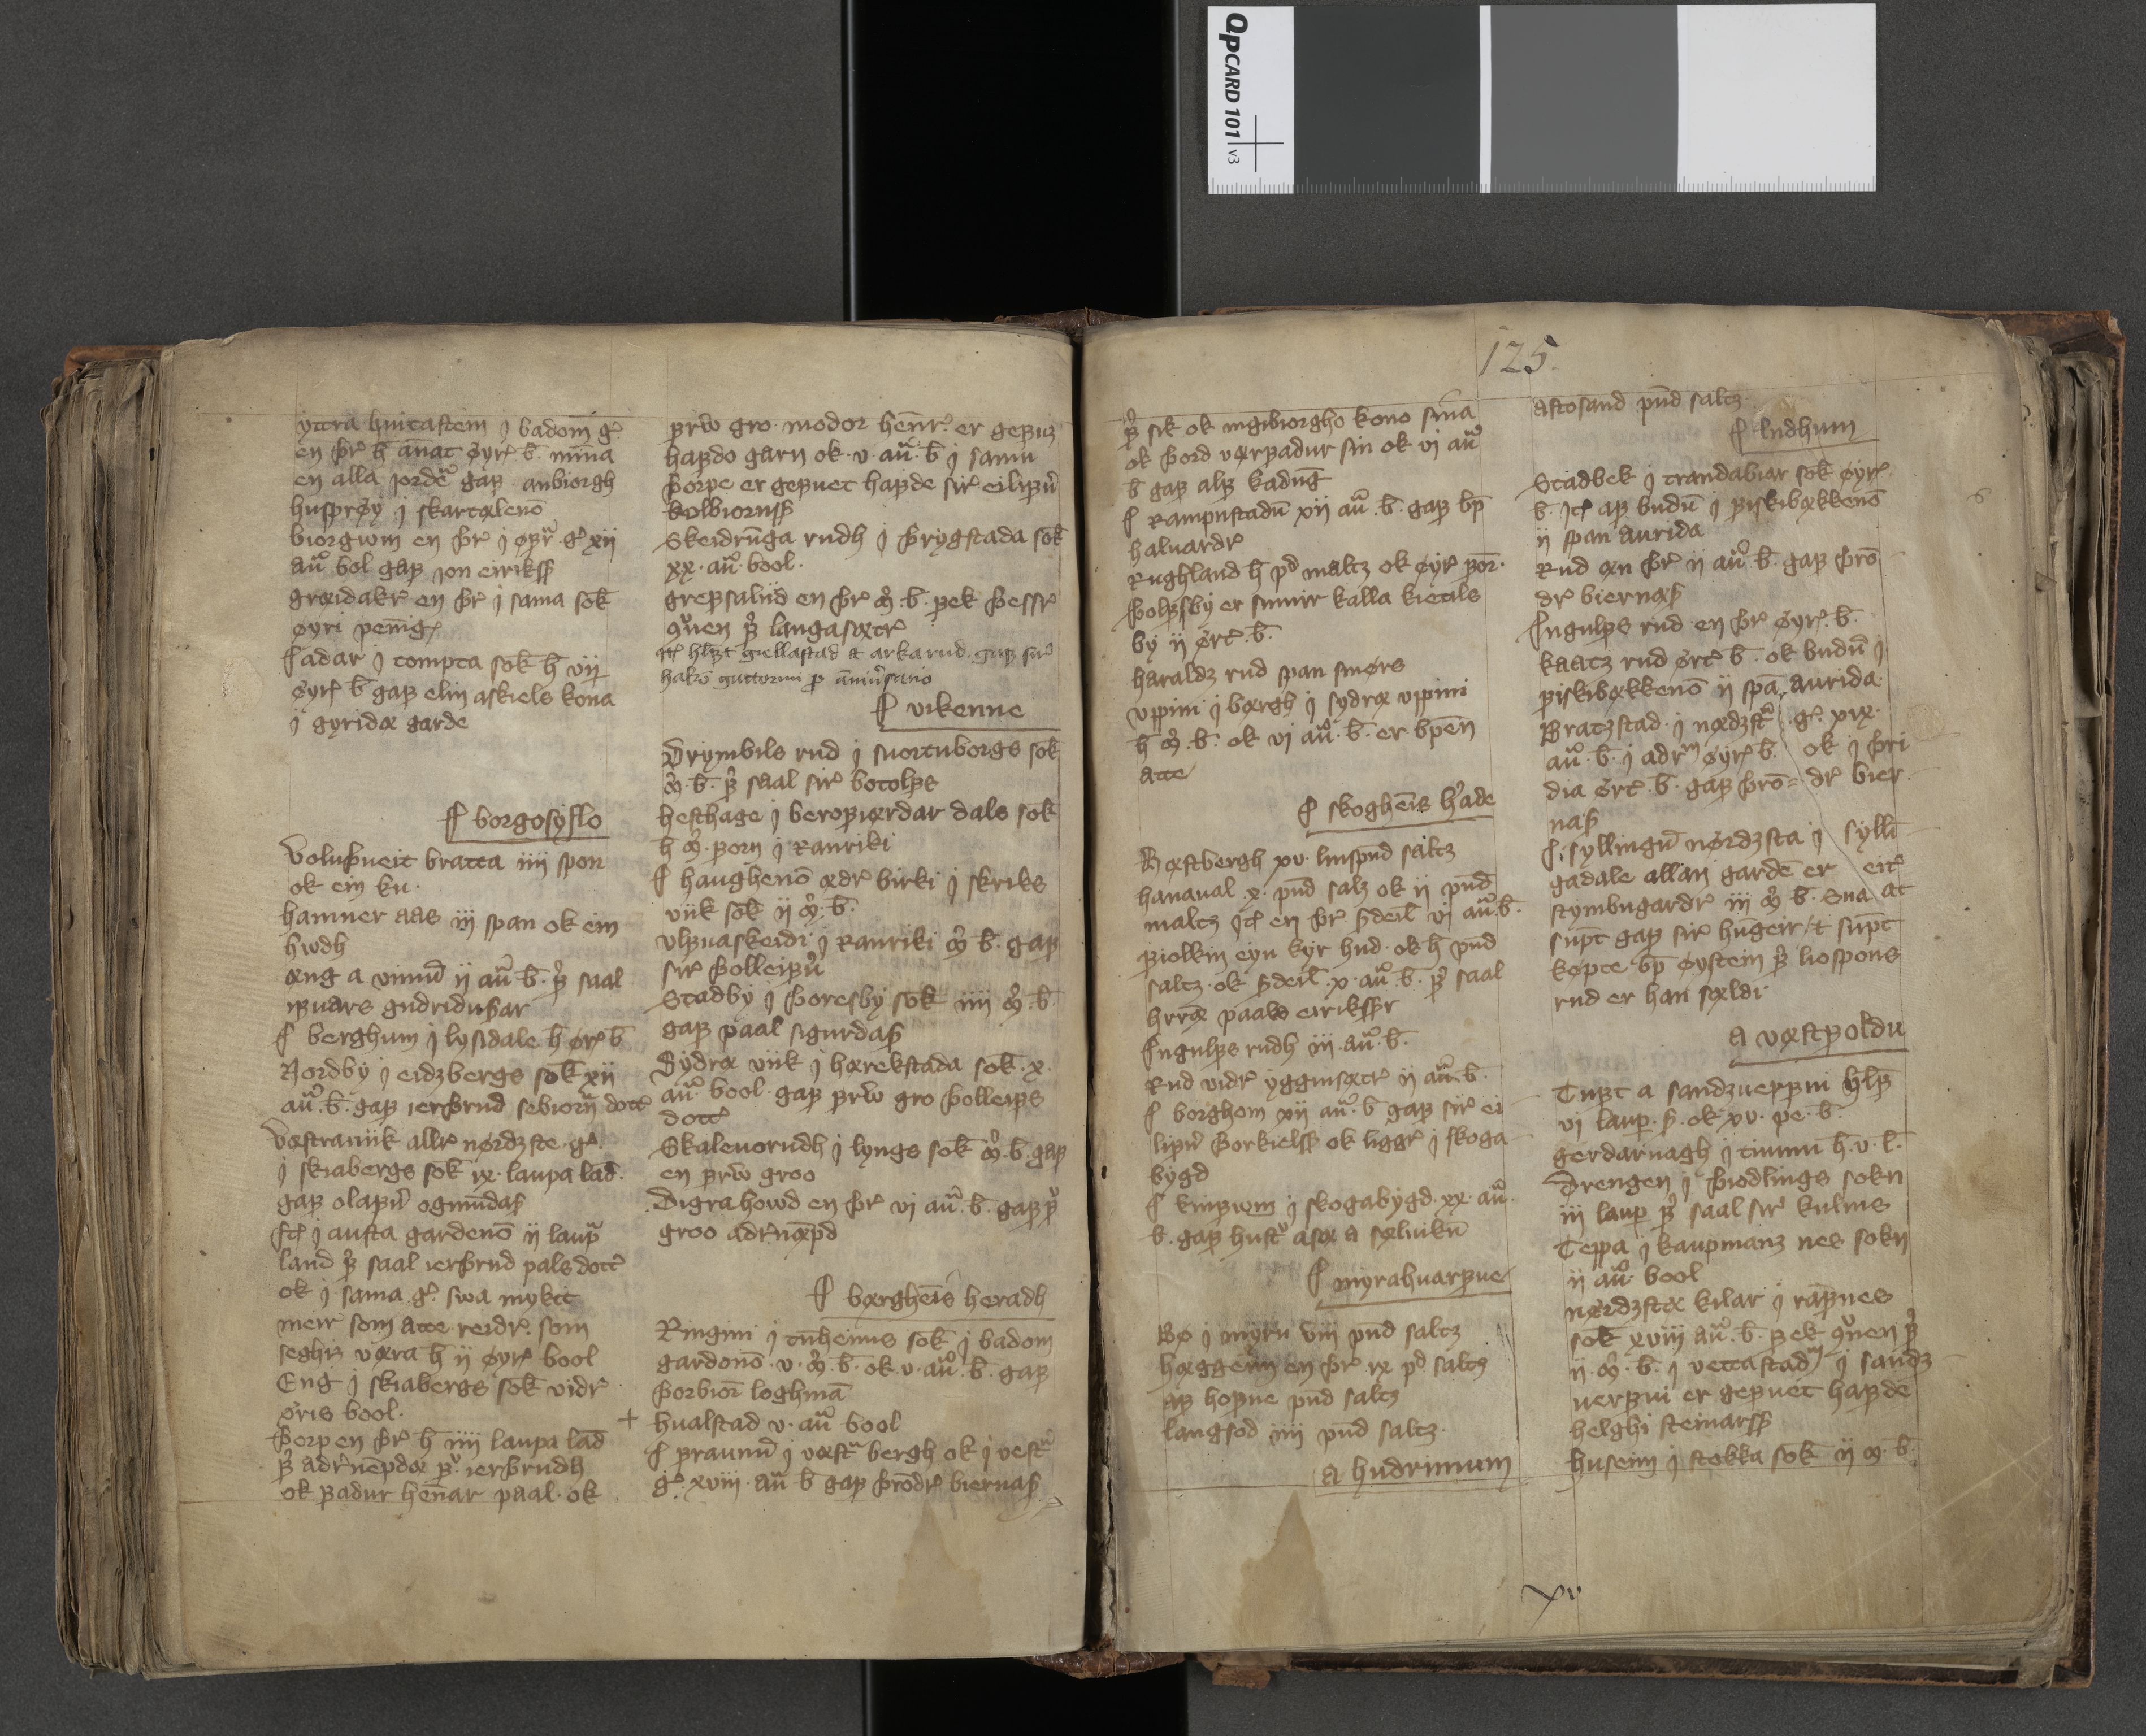 QPCARD 101 v3
125
yttra huitastein j badom g.
en þr h annat øyr b. mina
en alla jorden gaf anbiorgh
husprøy j skartalenō
biorgwm en þr j øfr g xij
au bol gaf jon eirikss
grøidakr en þr j sama sok
øyri penīg
Jadar j tompta sok h vij
øyr b gaf elin askiels kona
j gyridæ garde
J borgosyslo
Voluþueit bratta iiij spon
ok ein ku.
hamner aas iij span ok ein
hwdh
æng a vinnu ij au b. f saal
ifuars gudriduſar
J berghum j lysidale h ør b
Nordby j eidzbergs sok xij
au. b. gaf ierþrud sebiorn dott
Væstrauiik allr nørdzste g.
j skiabergs sok ix. laupa lad.
gaf olafu ogmundaſ
Jt j austa gardenō ij laup
land f saal ierþrud pals dott
ok j sama g. swa mykit
meir som atte reidr. som
seghiz væra h ij øyr bool
Eng j skiabergs sok vidr
øris bool.
þorp en þr h iiij laupa lad
f adrnefdæ f. ierþrudh
ok fadur hennar paal. ok
frw gro. modor henr. er gefiz
hafdo garn ok. v. au. b j samu
þorpe er gefuet hafde sir eilifu
kolbiornss
Skeidrunga rudh j þrygstada sok
xx. au. bool.
grefsalud en þr m. b. fek þessr
quen f langasætr
Jt hlzt giellastad et arkarud gaf sir
hakō guttorm p anniusario
J vikenne
Drymbils rud j suortuborgs sok
m. b. f saal sir botolfs
hesthage j berofiærdar dals sok
h m. forn j Ranriki
J haughenō ædr birki j skriks
viik sok ij m. b.
vlfuaskeidi j Ranriki m b. gaf
sir þolleifu
Stadby j þoresby sok iiij m. b
gaf paal sigurdaſ
Sydræ viik j hærekstada sok. x.
au. bool. gaf frw gro þolleifs
dott
Skaleuorudh j lyngs sok m. b. gaf
en frw groo
Digrahowd en þr vj au. b. gaf f
groo adrnæfd
J børgheīs heradh
Ringini j tunheims sok j badom
gardonō. v. m. b. ok v. au. b. gaf
þorbiorn loghmā
+ hualstad v. au bool
J fraunu j væst bergh ok j vest
g. xviij. au b gaf þrodr biernaſ
f sik ok ingibiorgho kono sina
ok þord værfadur sin ok vj au
b gaf alf kadung
J Rampnstadū xij au. b. gaf bp
haluardr
Rughland h pd maltz ok øyr forn.
þolfsby er sumir kalla kietals
by ij ørt. b.
haraldz rud span smørs
vppini j børgh j sydræ vppini
h m. b. ok vj au. b. er bpen
atte
J skogheīs hade
Bæstbergh xv. linspund saltz
hanaual. x. pund salz ok ij pund
maltz Jt en þr ſdeil vj au. b.
fiolkin eyn kyr hud. ok h pund
saltz. ok ſdeil. x. au. b. f saal
hrræ paals eirikssr
Jngulfs rudh iij. au. b.
Rud vidr yggiusætr ij au. b.
J borghom xij au. b gaf sir ei
lifu þorkielss ok liggr j skoga
bygd
J knifwm j skogabygd. xx. au.
b. gaf hust asa a sæluikū
J myrahuarfue
Bø j myru viij pund saltz
høggerin en þr ix pd saltz
af hofne pund saltz
langsod iiij pund saltz.
A hudrimum
Astosand pund saltz
J ludhum
Stadbek j trandabiar sok øyr.
b. Jt af budū j fiskibækkenō
ij span aurida
Rud æn þr ij au. b. gaf þrō
dr biernaſ
Jngulfs rud en þr øyr. b.
kaatz rud ørt b. ok budū j
fiskibækkenō ij spā aurida.
Bratzstad j nædzst g. xix.
au. b. j adr øyr b. ok j þri
dia ørt. b. gaf þrō= dr bier
naſ
J. syllingū nørdzsta j sylli
gadale allan garden er eit
stymbugardr iij m b. Sua at
supt gaf sir hugeir, et supt
køpte bp øystein f liospons
rud er han sældi
A væstfoldu
Tuft a sandzuerfui hlf
vj laup. s. ok xv. pe. b.
gerdaruagh j tiumu h. v. l.
Drengen j þiodlings sokn
iij laup f saal sir kulms
Teppa j kaupmanz nes sokn
ij au. bool
nørdzstæ kilar j rafnes
sok xviij au. b. fek quen f
ij. m. b. j vettastad j sandz
uerfui er gefuet hafde
helghi steinarss
huseim j stokka sok ij m. b.
xv